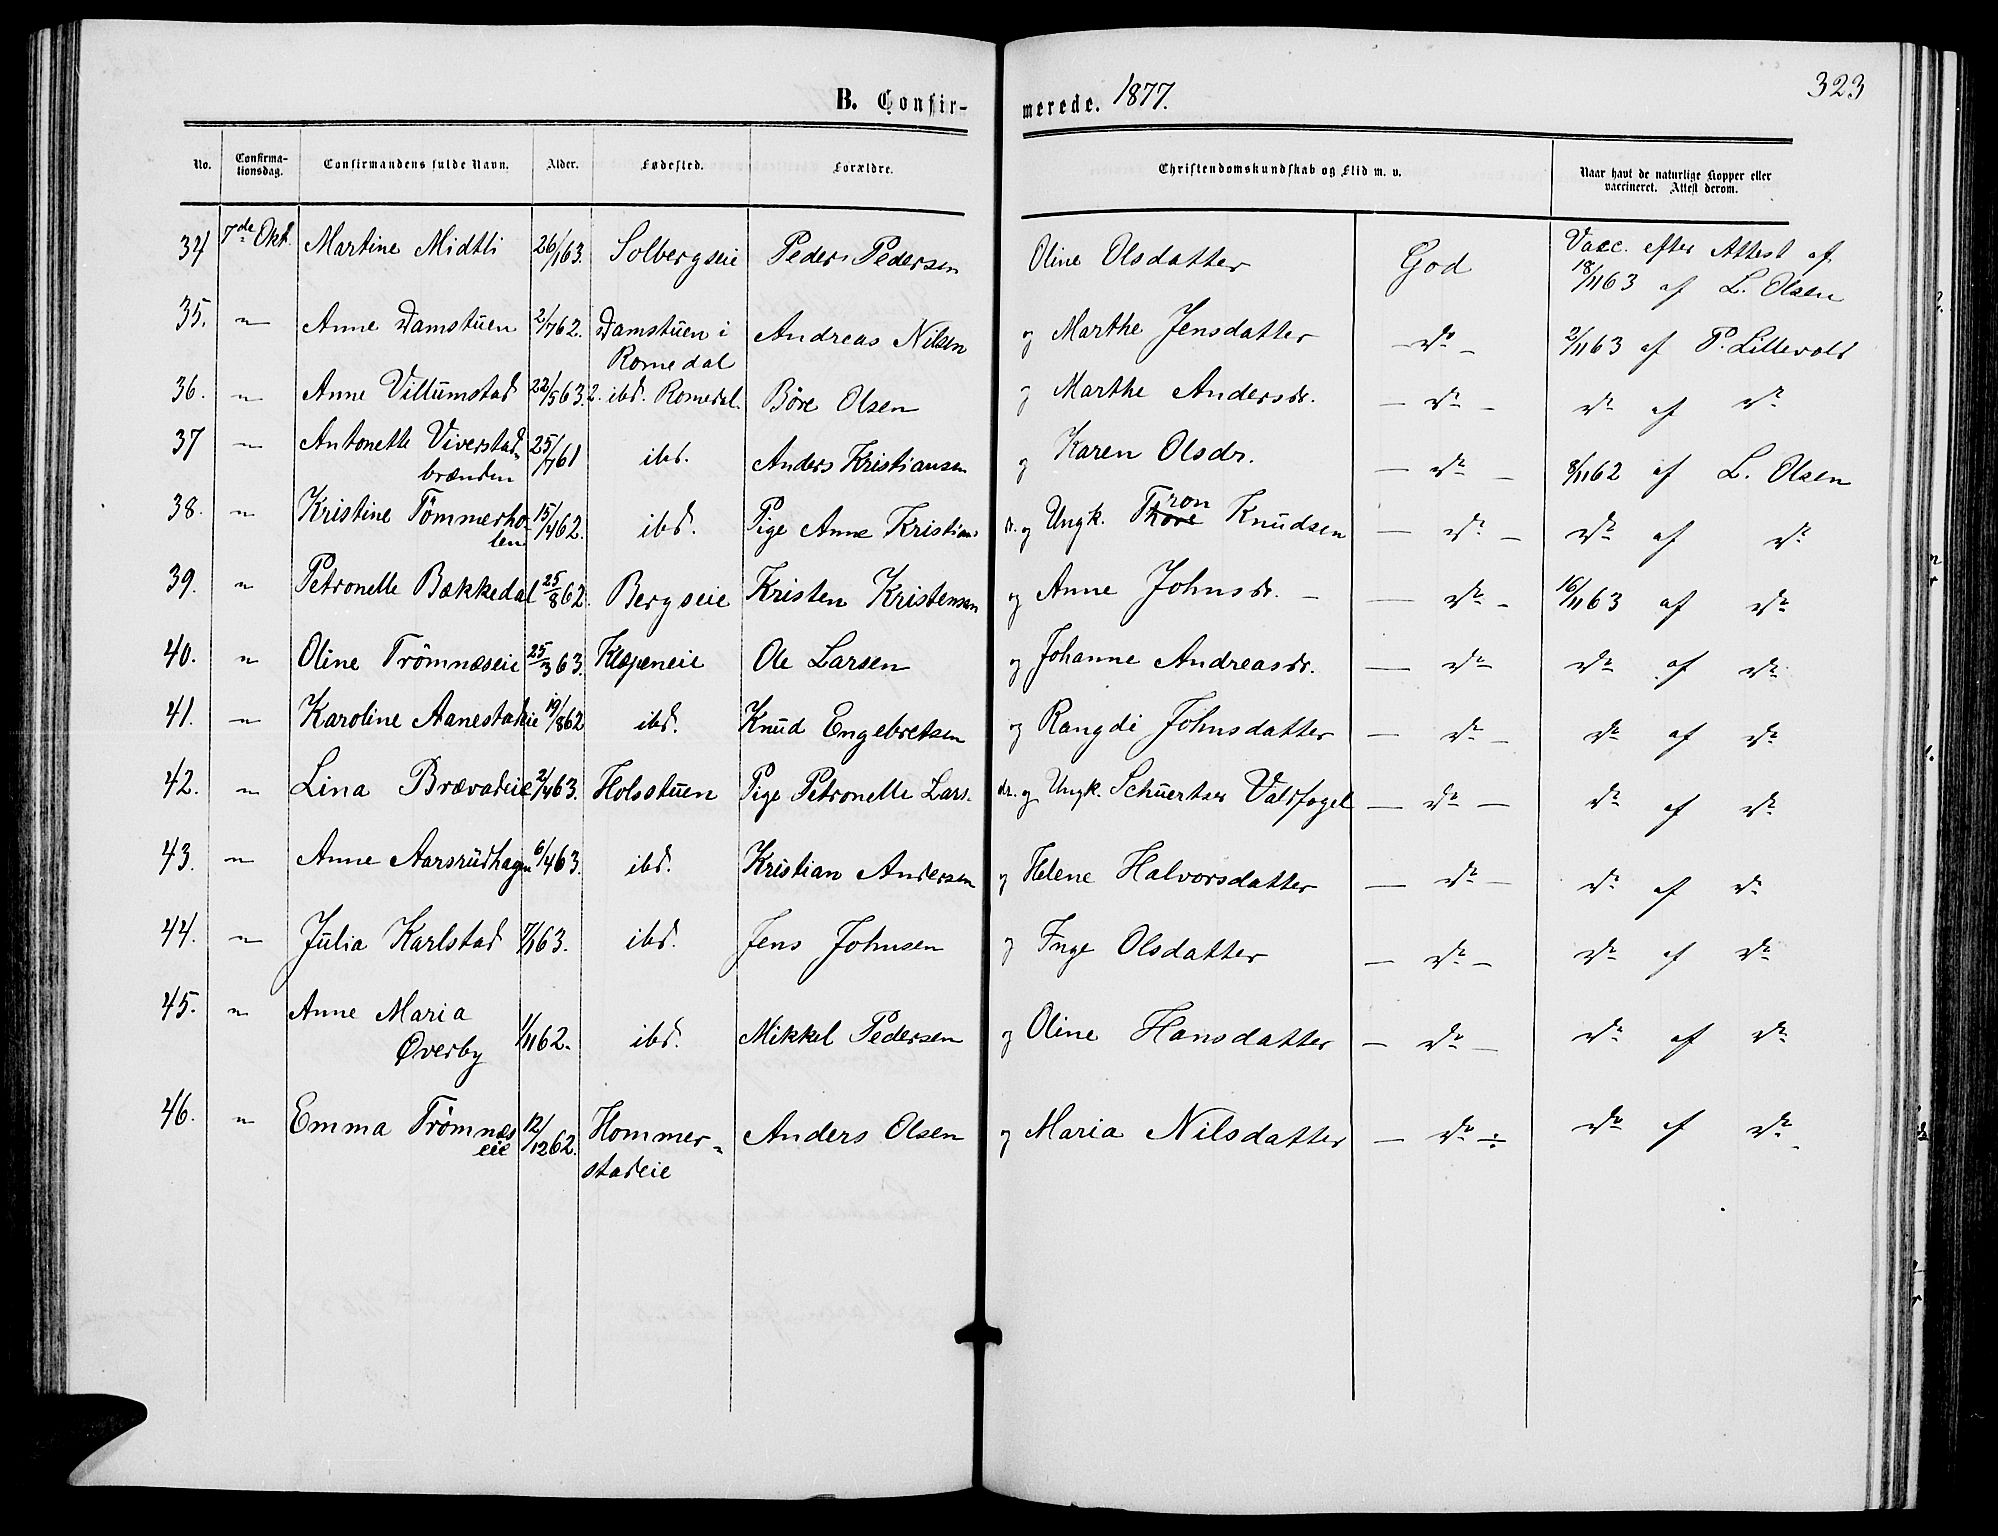 B. Confirmerede. 1877.
323
No. Confirmationsdag. Confirmandens fulde Navn. Alder. Fødested. Forældre. Christendomskundskab og Flid m. v. Naar havt de naturlige Kopper eller vaccineret. Attest derom.
34 7de Okt. Martine Midtli 26/1 63. Solbergseie Peder Pedersen Oline Olsdatter God Vacc. efter Attest af 18/11 63 af L. Olsen
35. " Anne Damstuen 2/7 62. Damstuen i Romedal Andreas Nilsen og Marthe Jensdatter — do — 2/11 63 af P. Lillevold
36. " Anne Villumstad 22/5 63. ibd. Romedal. Böre Olsen og Marthe Andersdr. — do — do af do
37 " Antonette Viverstad brænden 25/7 61 ibd. Anders Kristiansen og Karen Olsdr. — do — 8/11 62 af L. Olsen
38. " Kristine Tömmerholen 15/4 62. ibd. Pige Anne Kristiansdr. og Ungk. Tron Knudsen — do — do af do
39. " Petronelle Bækkedal 25/8 62. Bergseie Kristen Kristensen og Anne Johnsdr. — — do — 16/11 63 af do
40. " Oline Trömnæseie 25/3 63. Klæpeneie Ole Larsen og Johanne Andreasdr. — do do af do
41. " Karoline Aanestadeie 19/8 62 ibd. Knud Engebretsen og Rangdi Johnsdatter — do — do af do
42. " Lina Brævadeie 2/4 63. Holsstuen Pige Petronelle Larsdr. og Ungk. Schuertser Valdfogel — do — do af do
43. " Anne Aarsrudhagen 6/4 63. ibd. Kristian Andersen og Helene Halvorsdatter — do — do af do
44. " Julia Karlstad 7/1 63. ibd. Jens Johnsen og Inge Olsdatter — do — do af do
45. " Anne Maria Øverby 1/11 62. ibd. Mikkel Pedersen og Oline Hansdatter — do — do af do
46. " Emma Trømnæseie 12/12 62. Hommerstadeie Anders Olsen og Maria Nilsdatter — do ÷ do af do